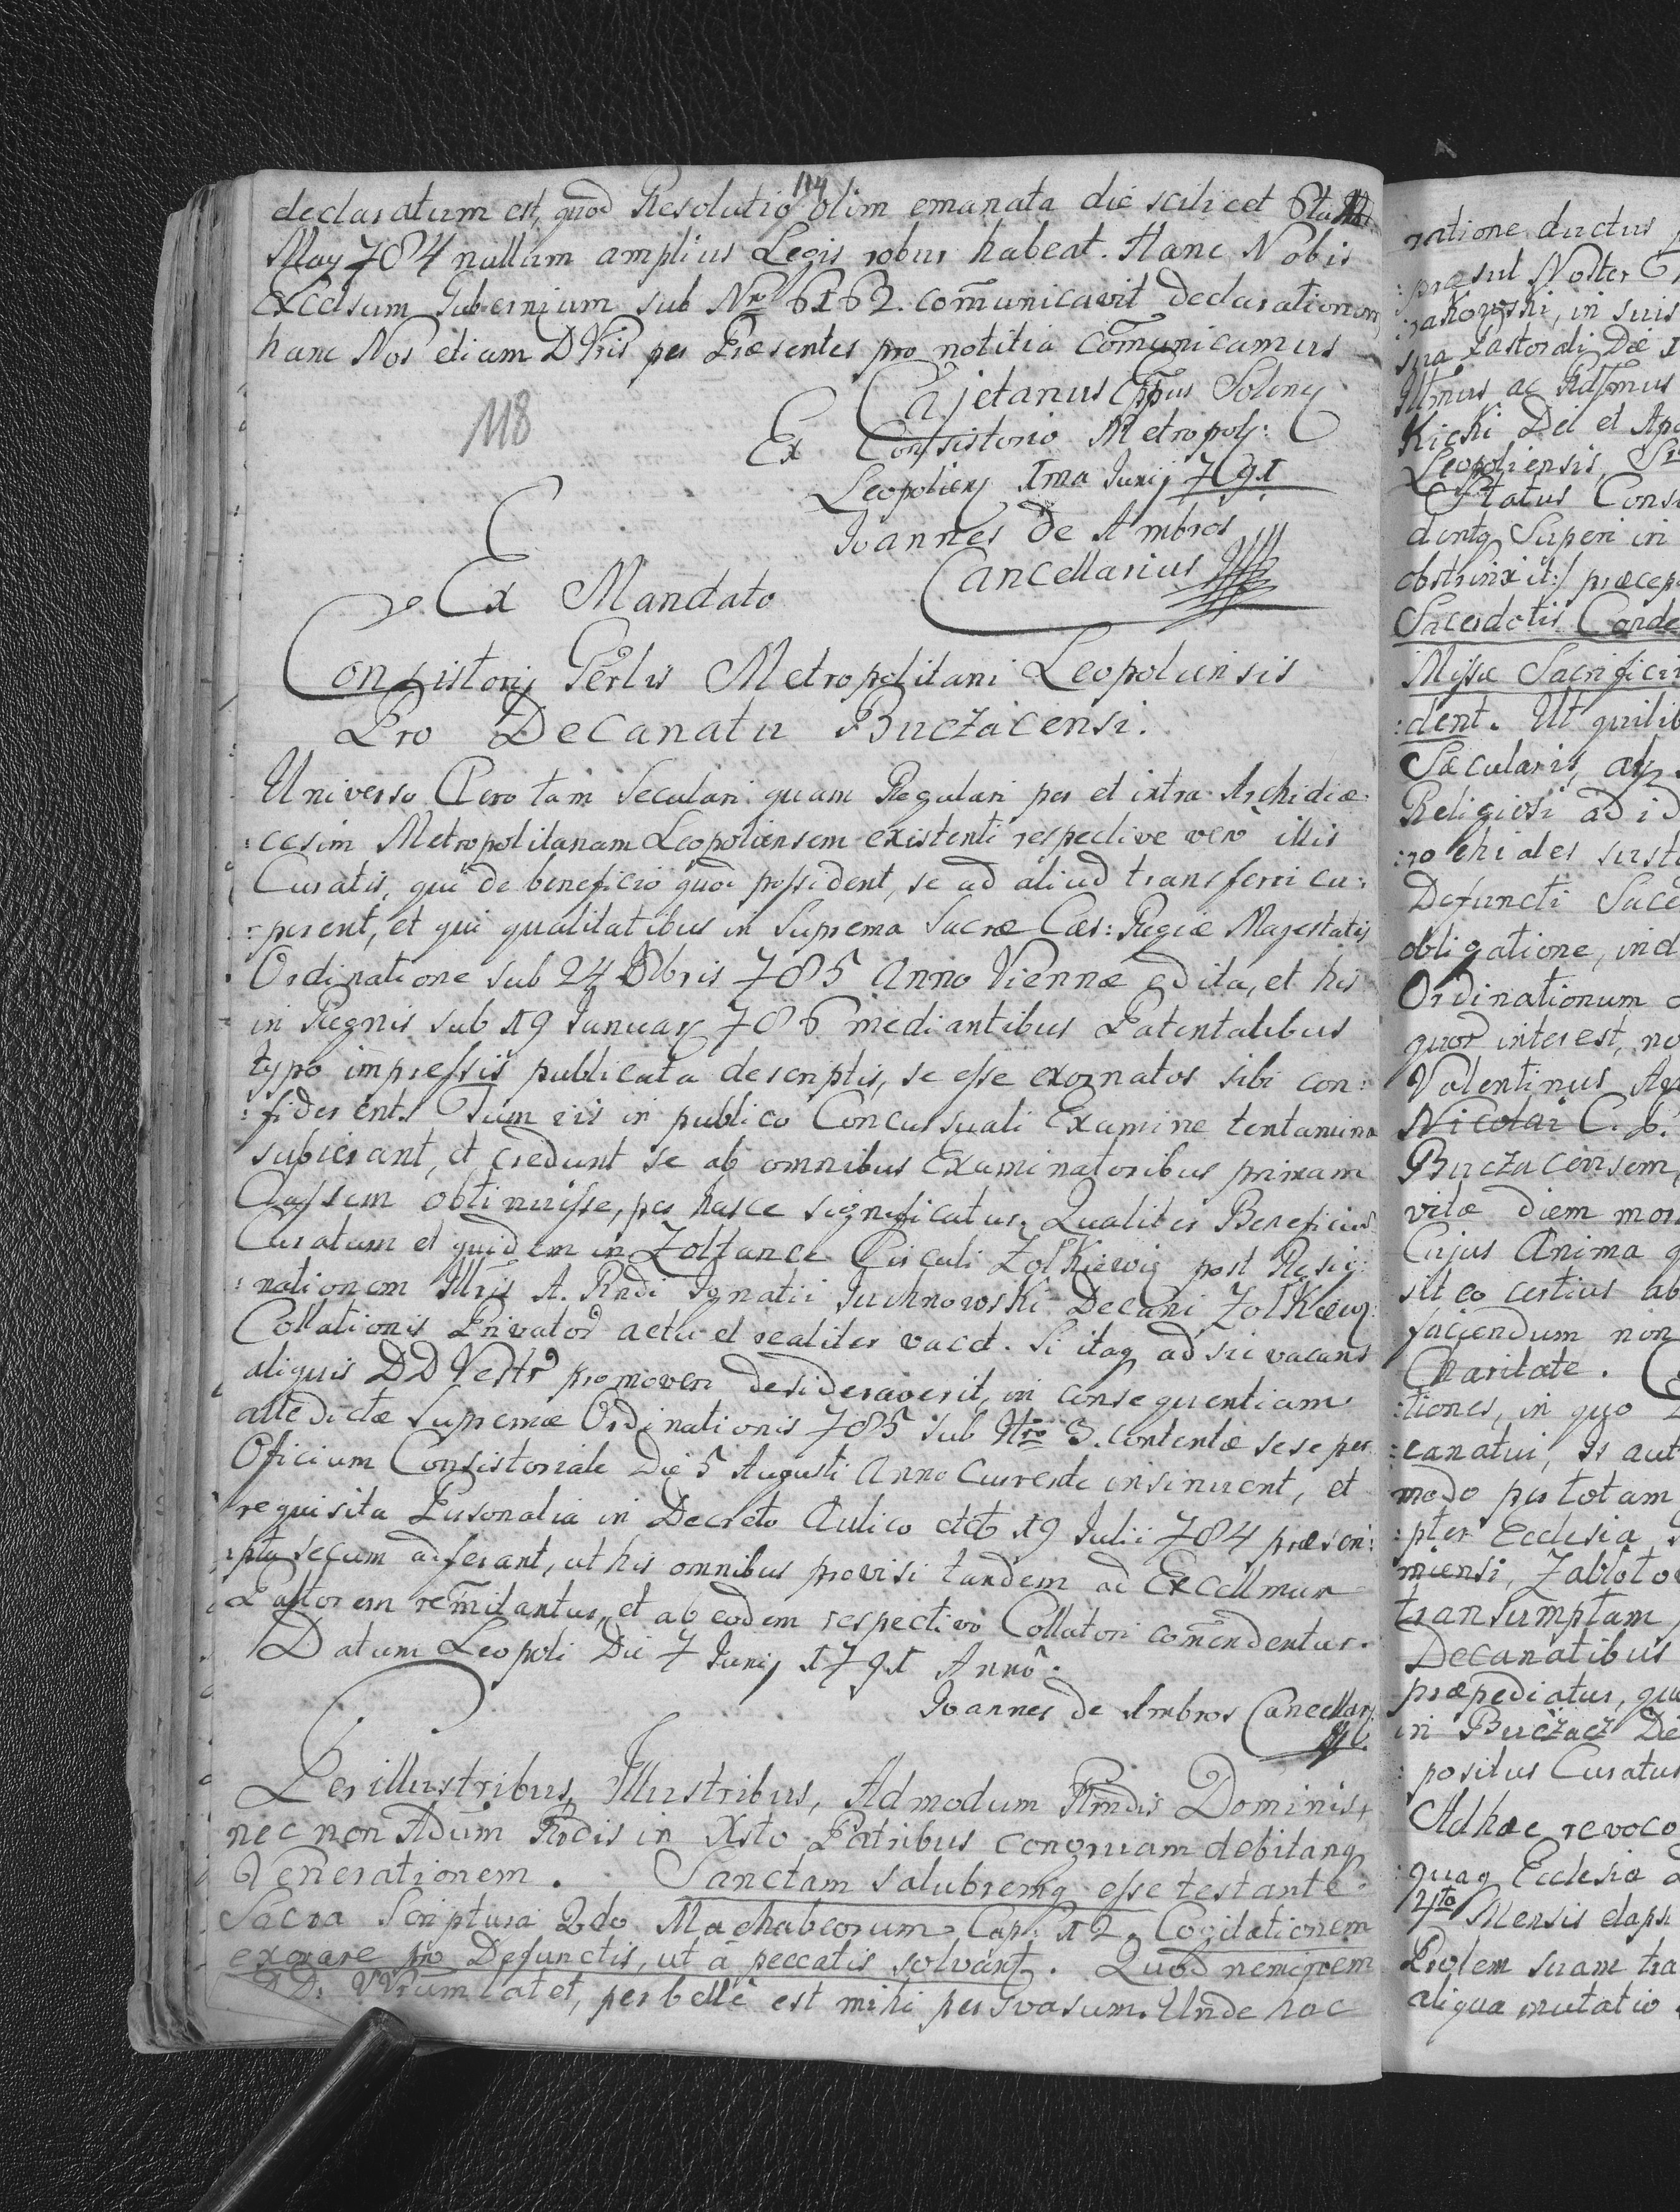 114
declaratum est, quod Resolutio olim emanata die scilicet 6ta
May 784 nullum amplius Legis robur habeat. Hanc Nobis
Excelsum Gubernium sub Nro 6162. comunicavit declarationem
hanc Nos etiam DVris per Præsentes pro notitia comunicamus
Cajetanus Eppus Soleny
118
Ex Consistorio Metropoly:
Leopolien 1ma Junij 791
Joannes de Ambros
Cancellarius
Ex Mandato
Consistorij Gerlis Metropolitani Leopoliensis
Pro Decanatu Buczacensi.
Universo Clero tam Seculari quam Regulari per et intra Archidiæ:
:cesim Metropolitanam Leopoliensem existenti respective vero illis
Curatis, qui de beneficio quod possident, se ad aliud transferri cu:
:perent, et qui qualitatibus in Suprema Sacræ Cæs: Regiæ Majestatis
Ordinatione sub 24 Xbris 785 Anno Viennæ edita, et his
in Regnis sub 19 January 786 mediantibus Patentalibus
typo impressis publicata descriptis, se esse exornatos sibi con:
:fiderent. Tum iis in publico Concursuali Examine tentamina
subierant, et credunt se ab omnibus Examinatoribus primam
Classem obtinuisse, per hasce significatur. Qualiter Beneficium
Curatum et quidem in Zoltance Circuli Zolkiewiy post Resig:
:nationem Illris A. Rndi Ignatii Juchnowski Decani Zolkiew:
Collationis Privator actu et realiter vacet. Si itaq ad sui vacans
aliquis DD Vestr promoveri desideraverit, in consequentiam
altedictæ Supremæ Ordinationis 785 sub Nro 3. contentæ sese per
Oficium Consistoriale Die 5 Augusti Anno Currente insinuent, et
requisita Personalia in Decreto Aulico dtt 19 Julii 784 præscri:
:pta secum adferant, ut his omnibus provisi tandem ad Excellmum
Pastorem remitantur, et ab eodem respectivo Collatori comendentur.
Datum Leopoli Die 7 Junij 1791 Anno.
Joannes de Ambros Cancellary
Perillustribus, Illustribus, Admodum Rmdis Dominis,
nec non Adum Rdis in Xsto Patribus congruam debitamq
Venerationem. Sanctam salubremq esse testante
Sacra Scriptura 2do Machabeorum Cap: 12. Cogitationem
exorare pro Defunctis, ut a peccatis solvant. Quod neminem
DD. VVrum latet, perbelle est mihi persvasum. Unde hac
ratione ductus
:præsul Noster
:rakowski, in suis
sua Pastorali Die
Illmus ac Rdsmus
Kicki Dei et Apo
Leopoliensis,
Status Cons
dentq Superi in
obstrinxit:/ præcep
Sacerdotis
Missæ Sacrificii
:dent. Ut quilib
Sæcularis,
Religiosi ad id
:rochiales
Defuncti Sace
obligatione, ind
Ordinationum
quod interest, no
Valentinus
Nicolai C. b.
Buczacensem,
vitæ diem mor
Cujus Anima q
sit eo certius ab
faciendum non
Charitate.
:tiones, in quo
:canatui, is aut
modo per totam
:pter Ecclesia
miensi, Zabloto
transumptam
Decanatibus
præpediatur, qu
in Buczacz De
:positus Curatus
Adhæc revoco
quaq Ecclesia
4to Mensis elaps
Prolem suam tra
aliqua mutatio